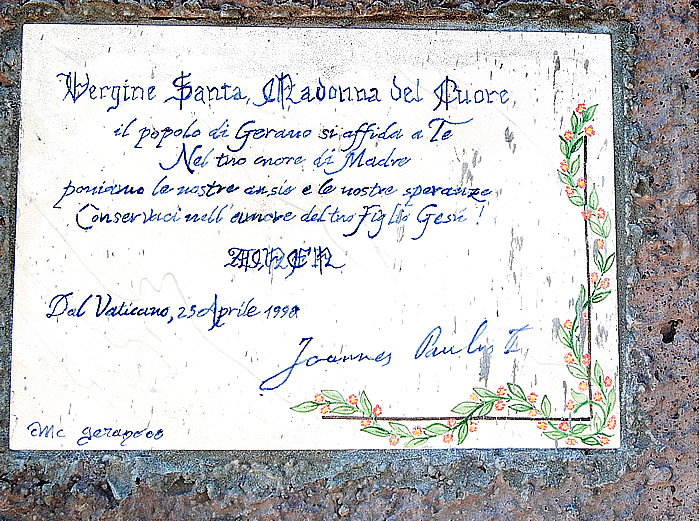 Vergine Santa, Madonna del Cuore,
il popolo di Gerano si affida a Te
Nel tuo cuore di Madre
poniamo le nostre ansie e le nostre speranze
Conservaci nell'amore del tuo Figlio Gesù!
AMEN
Dal Vaticano, 25 Aprile 1998
Joannes Paulus II